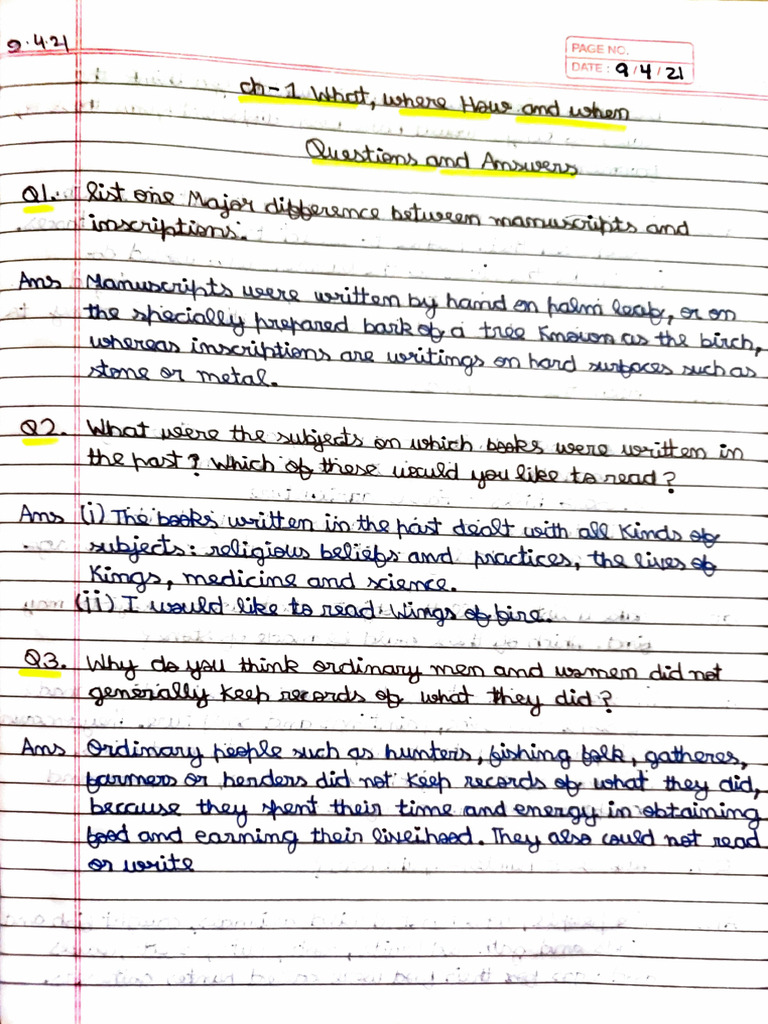 9.4.21
PAGE NO.
DATE: 9/4/21
ch-1 What, where How and when
Questions and Answers
Q1. list one Major difference between manuscripts and
inscriptions.
Ans Manuscripts were written by hand on palm leaf, or on
the specially prepared bark of a tree known as the birch,
whereas inscriptions are writings on hard surfaces such as
stone or metal.
Q2. What were the subjects on which books were written in
the past? Which of these would you like to read?
Ans (i) The books written in the past dealt with all kinds of
subjects: religious beliefs and practices, the lives of
Kings, medicine and science.
(ii) I would like to read Wings of fire.
Q3. Why do you think ordinary men and women did not
generally keep records of what they did?
Ans Ordinary people such as hunters, fishing folk, gatheres,
farmers or herders did not keep records of what they did,
because they spent their time and energy in obtaining
food and earning their liveihood. They also could not read
or write